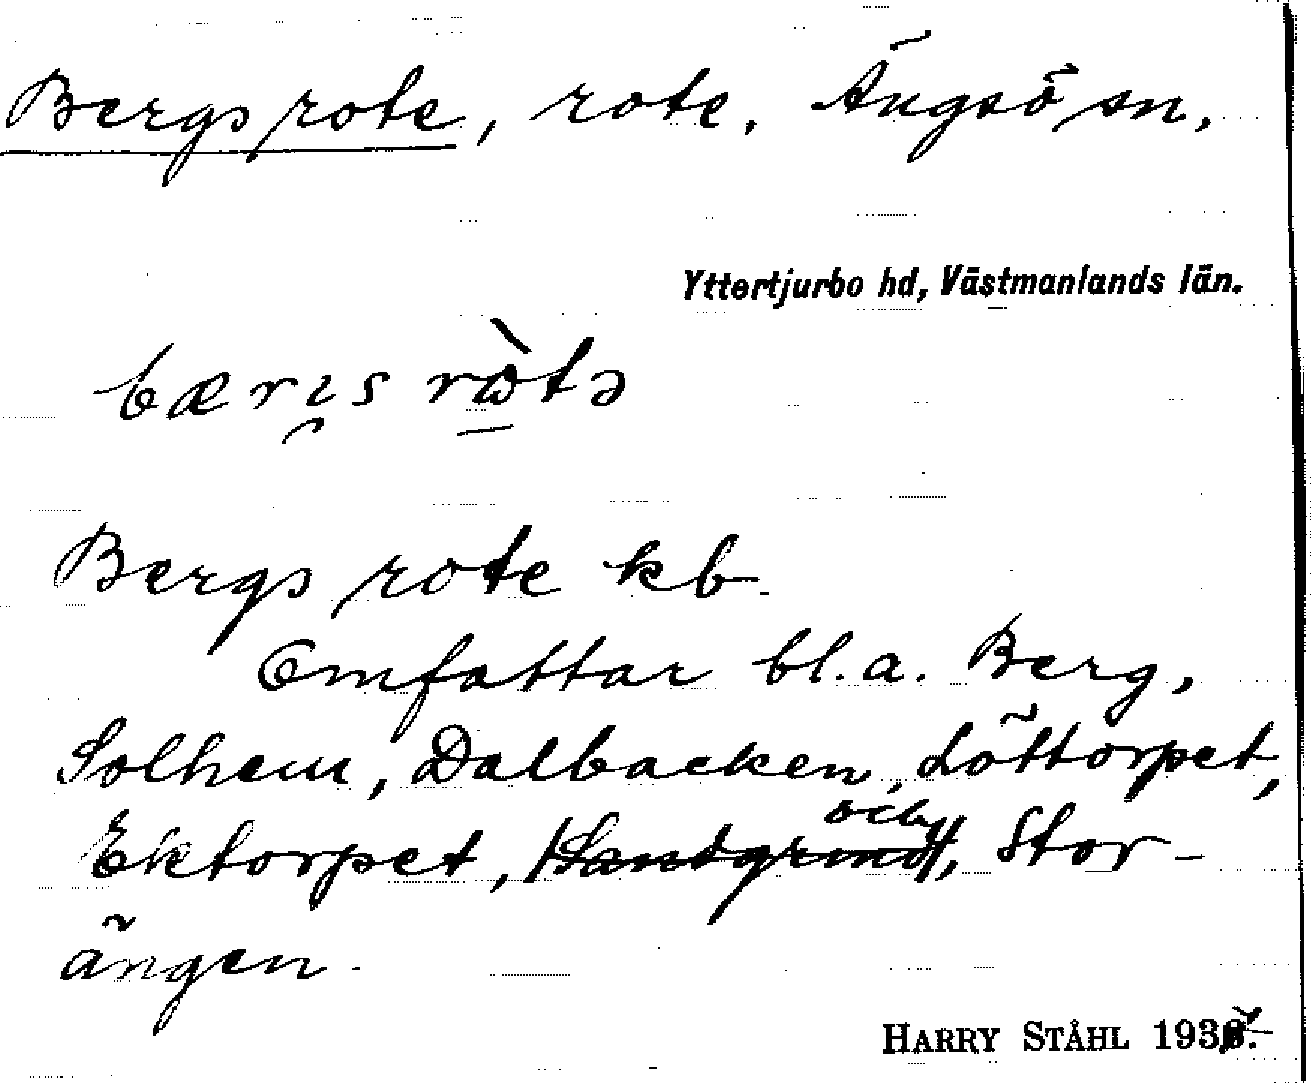 Bergs rote, rote, Ängsö sn,
Yttertjurbo hd, Västmanlands län.
bærɩs ròtə
Bergs rote kb.
Omfattar bl.a. Berg,
Solhem, Dalbacken, Löttorpet,
och
Ektorpet, Stor-
ängen.
HARRY STÅHL 1937.